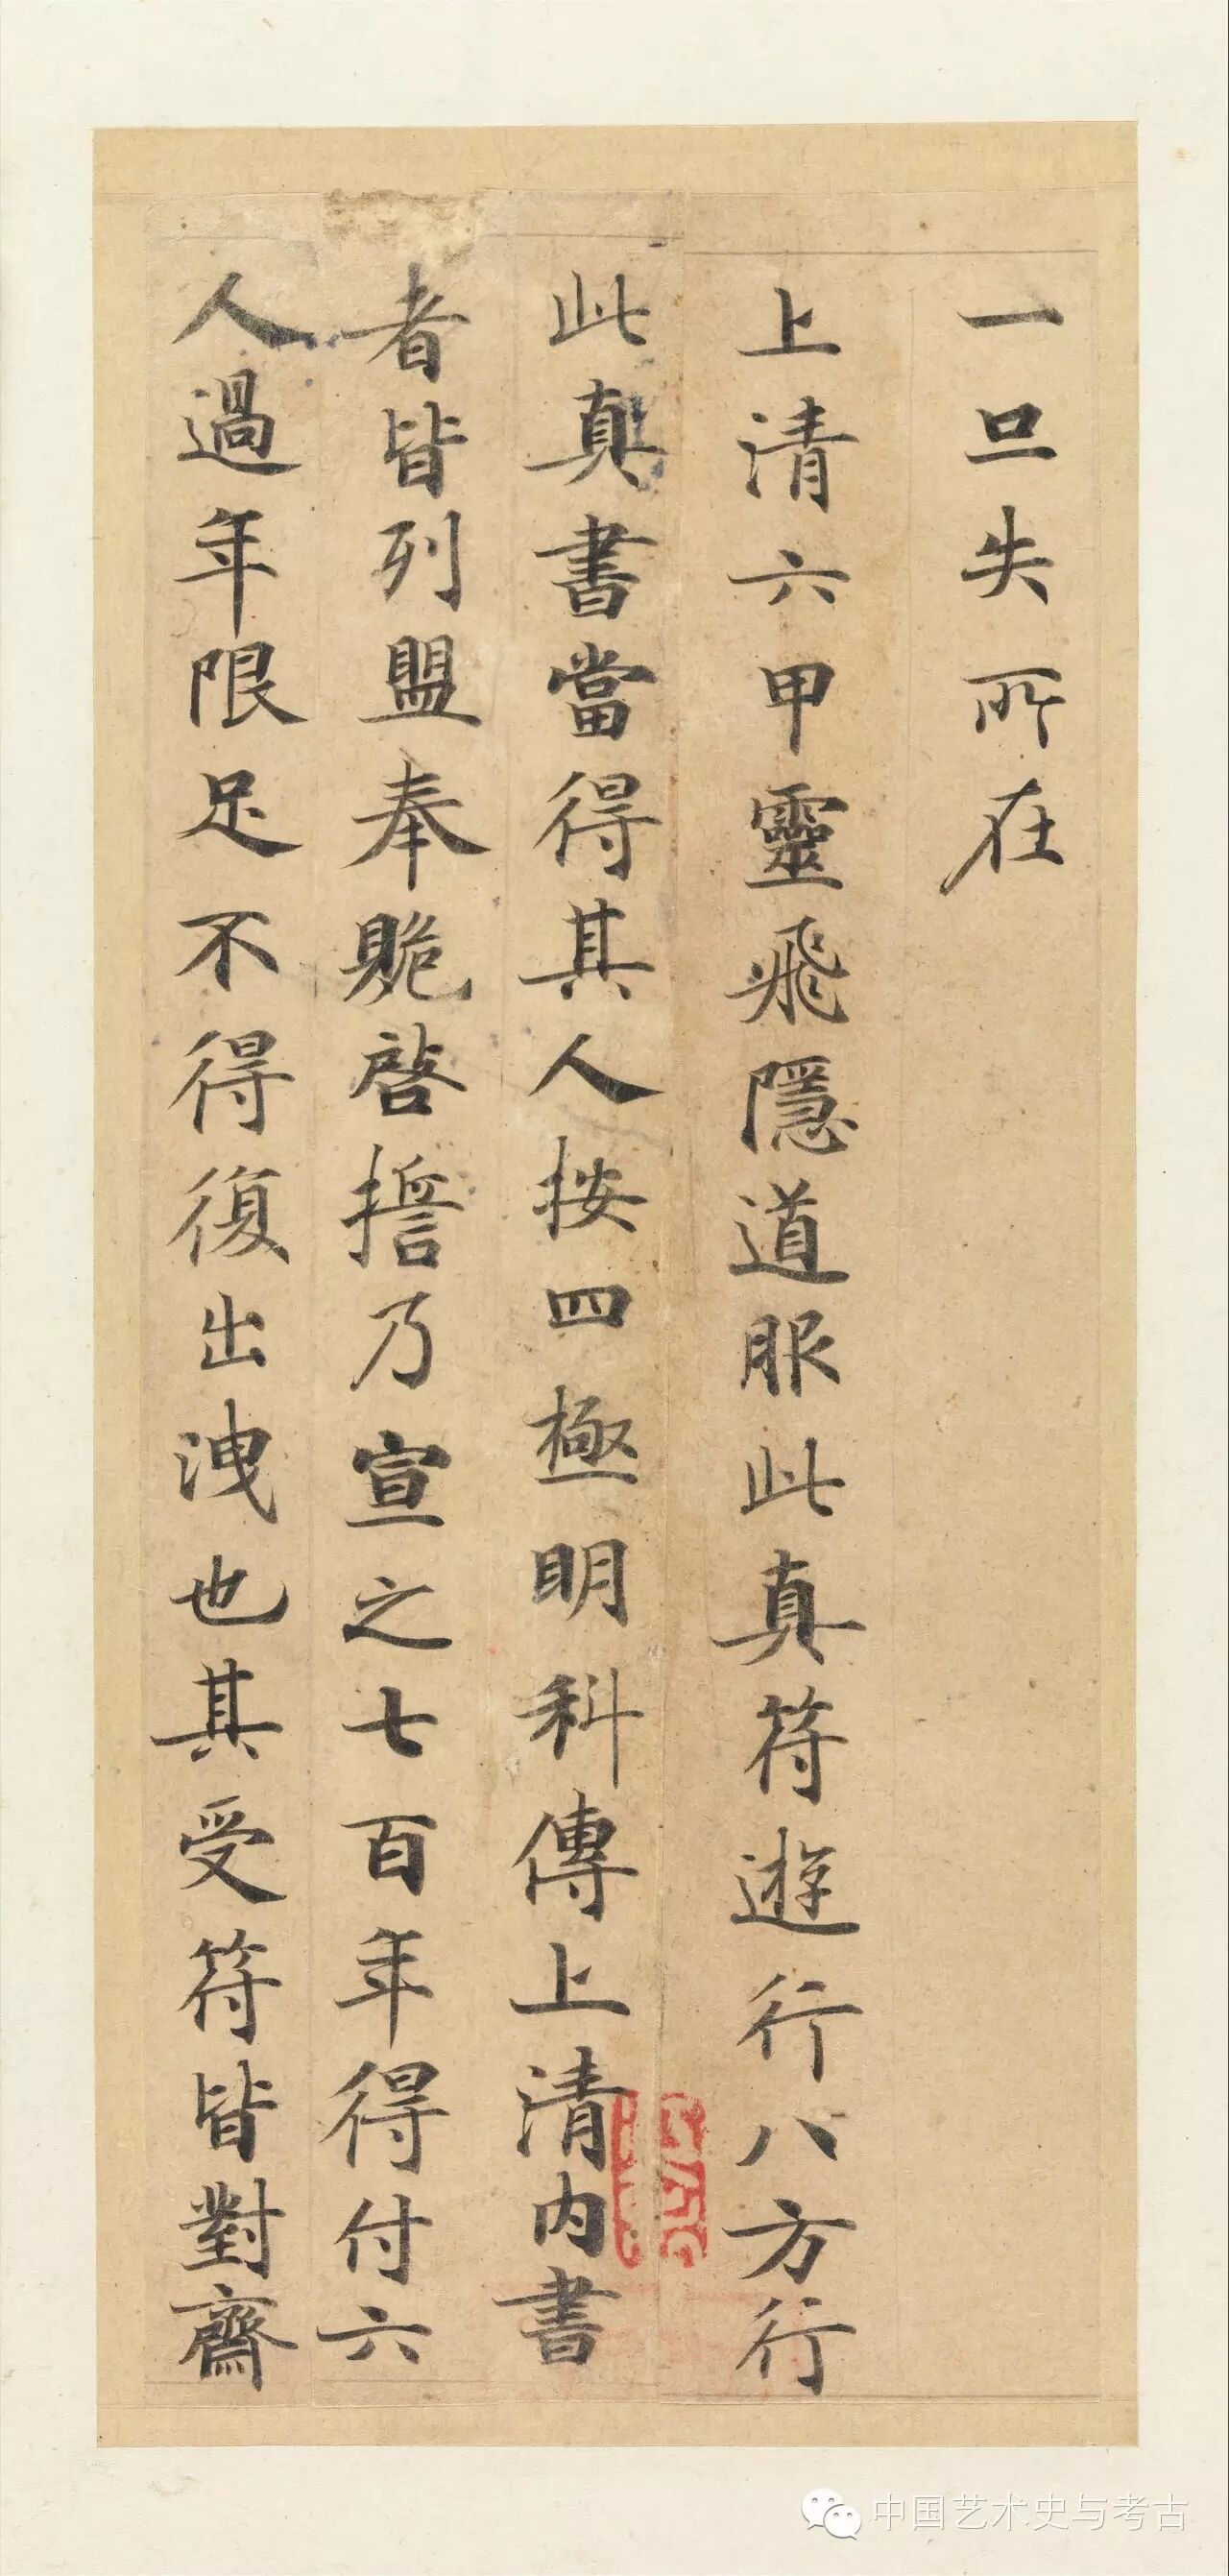 一旦失所在
上清六甲靈飛隱道服此真符遊行八方行
此真書當得其人按四極明科傳上清內書
者皆列盟奉貹啓擔乃宣之七百年得付六
人過年限足不得復出洩也其受符皆對齋
中国艺术史与考古